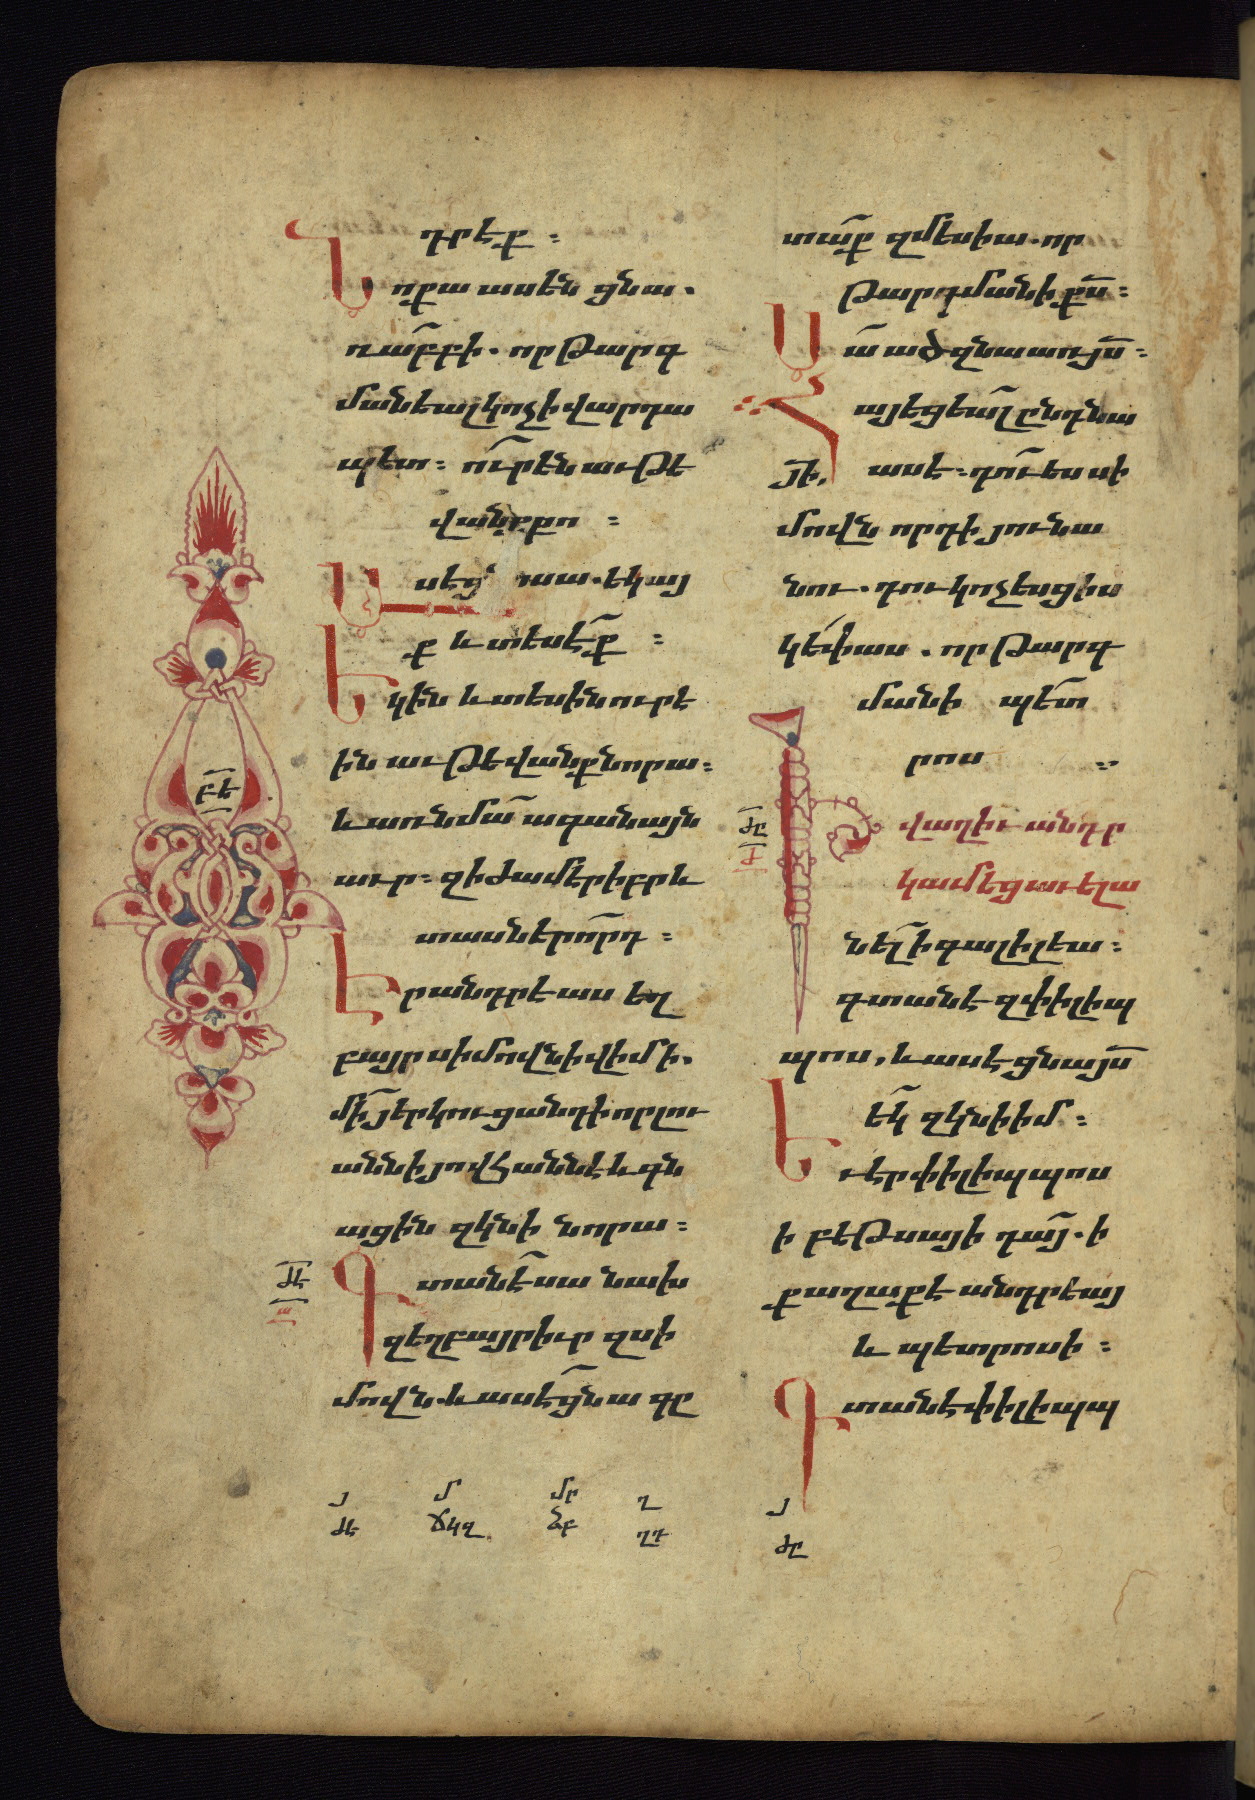 դրէք ։
Նոքա ասեն ցնա .
ռաբբի . որ թարգ
մանեալ կոչի վարդա
պետ ։ ո՞ւր են աւթե
վանք քո ։
Ասէ ց՛ սա . եկայ
ք և տեսէ՛ք ։
Եկին և տեսին ուր է
ին աւթեվանք նորա ։
և առ նմա՛ ագան այն
աւր ։ զի ժամ էր իբրև
տասներո՛րդ ։
Էր անդրէաս եղ
բայր սիմովնի վիմի .
մի՛ յերկուց անդի որ լու
անն ի յովհաննէ և գն
ացին զկնի նորա ։
ԺԷ
ա
Գտանէ՛ սա նախ
զեղբայր իւր զսի
մովն . և ասէ ցնա գը
բե
տա՛ք զմեսիա . որ
թարգմանի ք՟ս ։
Ա՛ ած զնա առ յ՟ս ։
Հայեցեա՛լ ընդ նա
յ՟ի , ասէ ։ դո՛ւ ես սի
մովն որդի յունա
նու . դու կոչեսցիս
կեփաս . որ թարգ
մանի պե՛տ
րոս ։
ԺԸ
Ժ
Ի վաղիւ անդր
կամեցաւ ելա
նե՛լ ի գալիլեա ։
գտանէ զփիլիպ
պոս , և ասէ ցնա յ՟ս
ե՛կ զկնի իմ ։
Եւ էր փիլիպպոս
ի բեթսայի դայ . ի
քաղաքէ անդրեայ
և պետրոսի ։
Գտանէ փիլիպպ
յ մ մր ղ
ժե ճկզ ծբ ղդ
յ
ժը